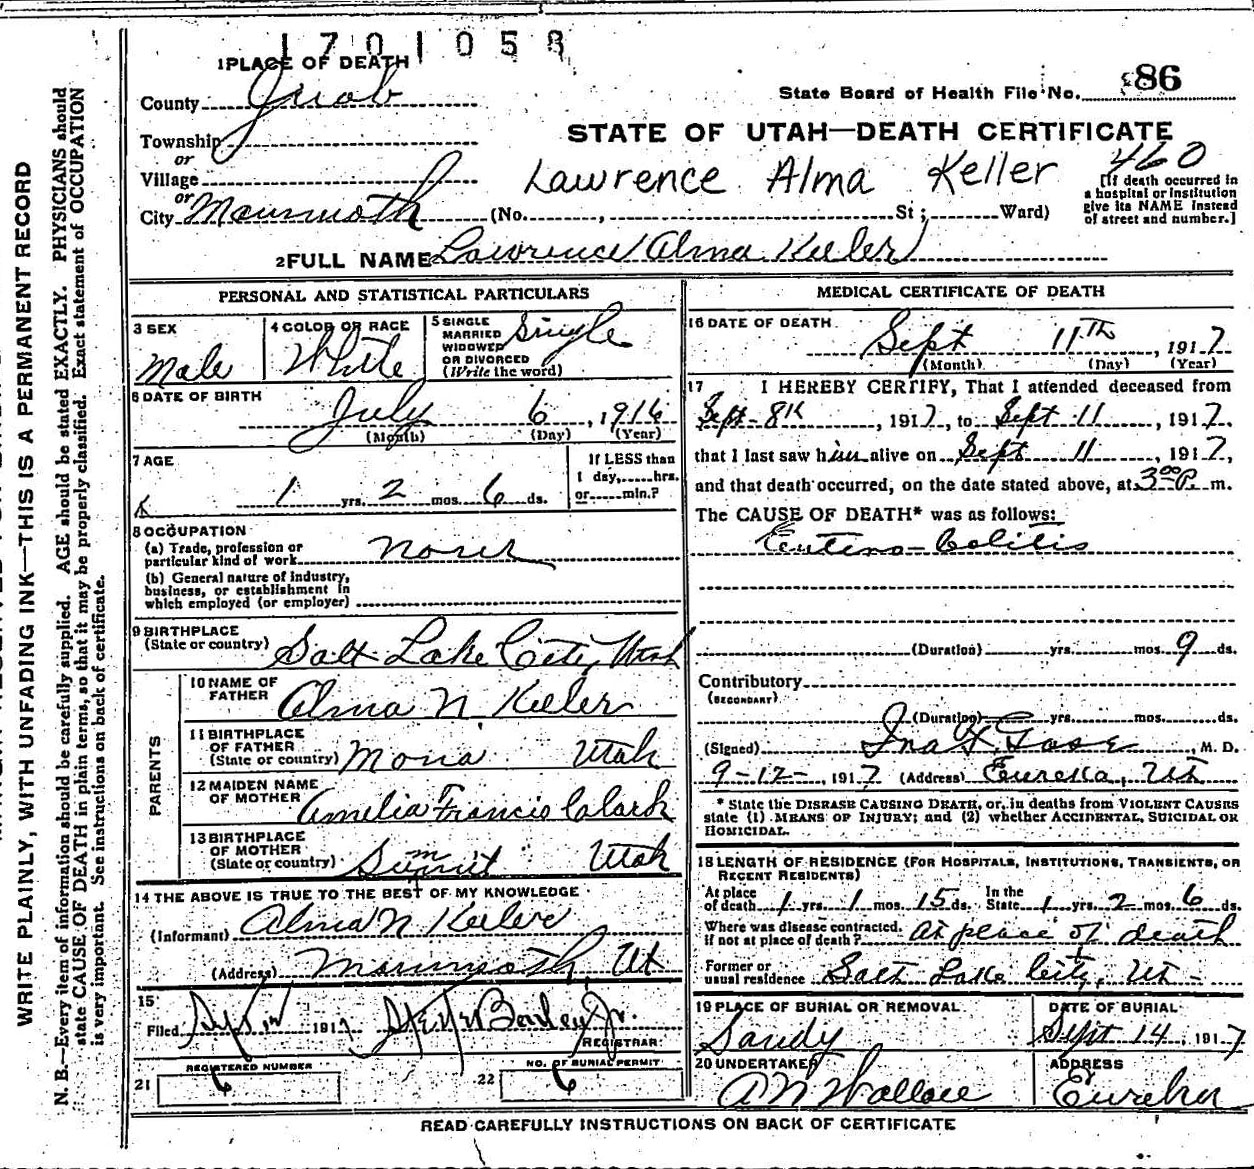 1701058
1 PLACE OF DEATH
County Juab
State Board of Health File No. 86
Township
STATE OF UTAH—DEATH CERTIFICATE
or
Village
Lawrence Alma Keller 460
or
City Mammoth (No. , St ; Ward)
[If death occurred in
a hospital or institution
give its NAME instead
of street and number.]
2 FULL NAME Lawrence Alma Keller
PERSONAL AND STATISTICAL PARTICULARS
3 SEX Male
4 COLOR OR RACE White
5 SINGLE
MARRIED
WIDOWED
OR DIVORCED
(Write the word) Single
6 DATE OF BIRTH
July 6, 1916
(Month) (Day) (Year)
7 AGE
1 yrs. 2 mos. 6 ds.
If LESS than
1 day, hrs.
or min.?
8 OCCUPATION
(a) Trade, profession or
particular kind of work None
(b) General nature of industry,
business, or establishment in
which employed (or employer)
9 BIRTHPLACE
(State or country) Salt Lake City, Utah
PARENTS
10 NAME OF
FATHER Alma N. Keller
11 BIRTHPLACE
OF FATHER
(State or country) Mona Utah
12 MAIDEN NAME
OF MOTHER Amelia Francis Clark
13 BIRTHPLACE
OF MOTHER
(State or country) Summit Utah
14 THE ABOVE IS TRUE TO THE BEST OF MY KNOWLEDGE
(Informant) Alma N Keller
(Address) Mammoth, Ut
15
Filed Sept 12 1917
REGISTRAR
REGISTERED NUMBER
21 6
NO. OF BURIAL PERMIT
22 6
MEDICAL CERTIFICATE OF DEATH
16 DATE OF DEATH
Sept 11TH, 1917
(Month) (Day) (Year)
17 I HEREBY CERTIFY, That I attended deceased from
Sept. 8th, 1917, to Sept 11, 1917,
that I last saw him alive on Sept 11, 1917,
and that death occurred, on the date stated above, at 3 00 P. m.
The CAUSE OF DEATH* was as follows:
Entero-Colitis
(Duration) yrs. mos. 9 ds.
Contributory
(SECONDARY)
(Duration) yrs. mos. ds.
(Signed) , M. D.
9-12-, 1917 (Address) Eureka, Ut
* State the DISEASE CAUSING DEATH, or, in deaths from VIOLENT CAUSES
state (1) MEANS OF INJURY; and (2) whether ACCIDENTAL, SUICIDAL OR
HOMICIDAL.
18 LENGTH OF RESIDENCE (FOR HOSPITALS, INSTITUTIONS, TRANSIENTS, OR
RECENT RESIDENTS)
At place
of death 1 yrs. 1 mos. 15 ds. In the
State 1 yrs. 2 mos. 6 ds.
Where was disease contracted,
if not at place of death? At place of death
Former or
usual residence Salt Lake City, Ut-
19 PLACE OF BURIAL OR REMOVAL
Sandy
DATE OF BURIAL
Sept 14, 1917
20 UNDERTAKER
A N Wallace
ADDRESS
Eureka
READ CAREFULLY INSTRUCTIONS ON BACK OF CERTIFICATE
WRITE PLAINLY, WITH UNFADING INK—THIS IS A PERMANENT RECORD
N. B.—Every item of information should be carefully supplied. AGE should be stated EXACTLY. PHYSICIANS should
state CAUSE OF DEATH in plain terms, so that it may be properly classified. Exact statement of OCCUPATION
is very important. See instructions on back of certificate.